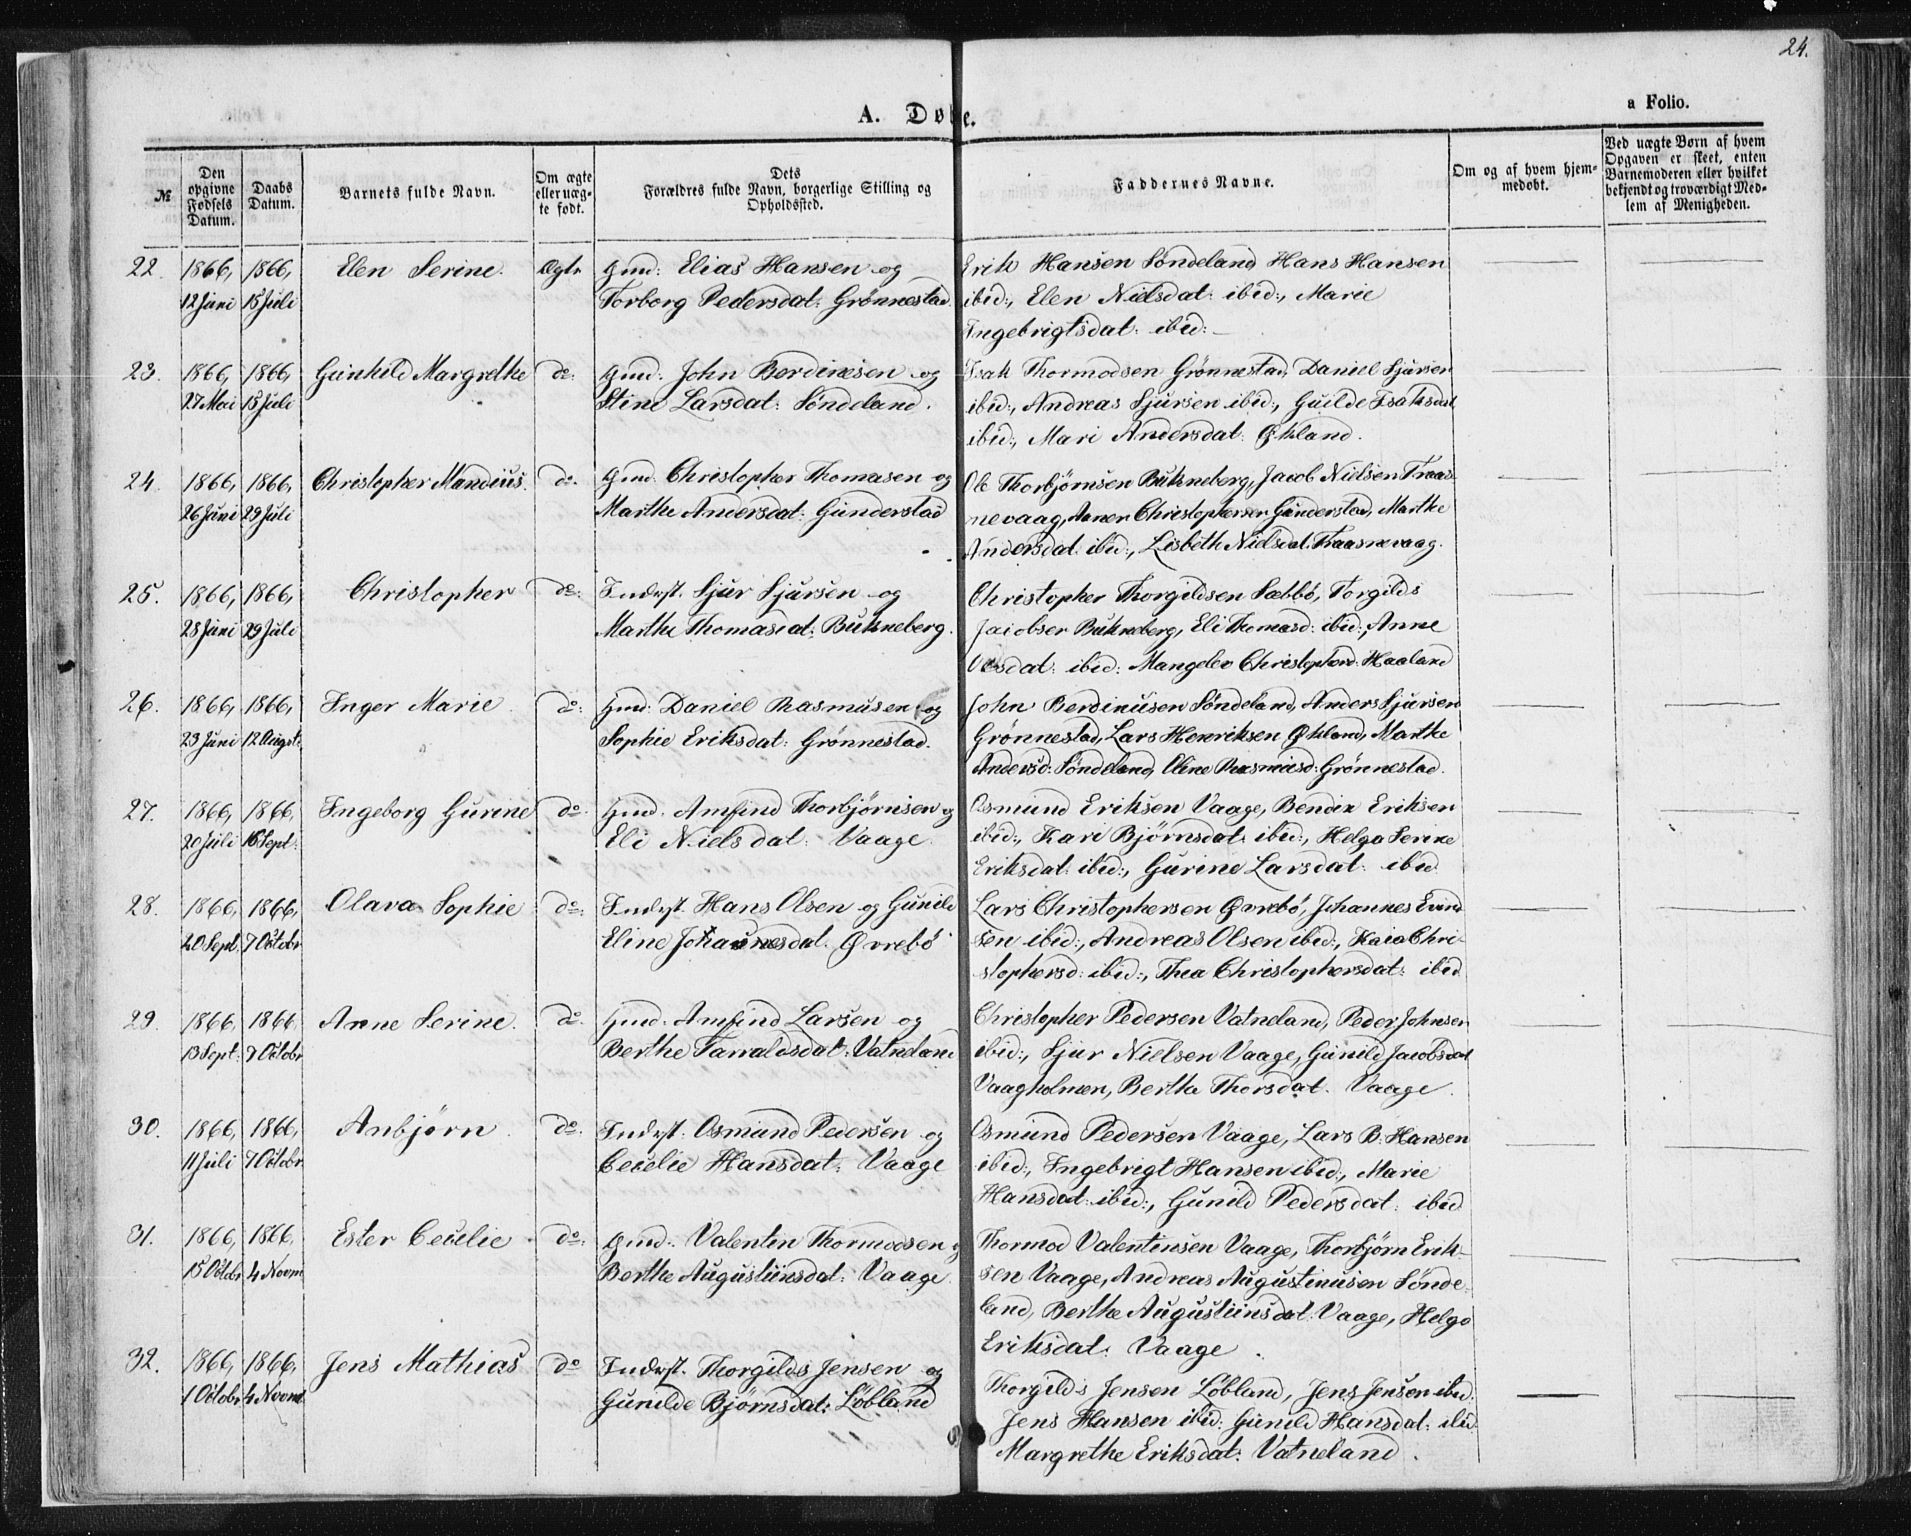 24.
a Folio.
A. Døbe.
№
Den opgivne Fødsels Datum.
Daabs Datum.
Barnets fulde Navn.
Om ægte eller uægte født.
Dets Forældres fulde Navn, borgerlige Stilling og Opholdssted.
Faddernes Navne.
Om og af hvem hjemmedøbt.
Ved uægte Børn af hvem Opgaven er skeet, enten Barnemoderen eller hvilket bekjendt og troværdigt Medlem af Menigheden.
22. 1866, 1866, Elen Serine. Ægte Gmd: Elias Hansen og Erik Hansen Søndeland, Hans Hansen
12 Juni 15 Juli Torborg Pedersdat: Grønnestad. ibid:, Elen Nielsdat: ibid:, Marie
Ingebrigtsdat: ibid:
23. 1866, 1866, Gunhild Margrethe do: Gmd: John Berdinesen og Isak Thormodsen Grønnestad, Daniel Sjursen
27 Mai 15 Juli Stine Larsdat: Søndeland. ibid:, Andreas Sjursen ibid:, Guilde Isaksdat
ibid:, Mari Andersdat: Økland.
24. 1866, 1866, Christopher Mandius. do. Gmd. Christopher Thomasen og Ole Thorbjørnsen Bukneberg, Jacob Nielsen Traas-
26 Juni 29 Juli Marthe Andersdat: Gunderstad nevaag, Christophersen Gunderstad, Marthe
Andersdat: ibid:, Lisbeth Nielsdat: Traasnevaag.
25. 1866, 1866, Christopher do: Inderst. Sjur Sjursen og Christopher Thorgildsen Sæbbø, Torgilds
28 Juni 29 Juli Marthe Thomasdat: Bukneberg. Jacobsen Bukneberg, Eli Thomasd: ibid:, Anne
ibid: Mangelev Christophersd: Haaland
26. 1866, 1866, Inger Marie do: Gmd: Daniel Rasmusen og John Berdinusen Søndeland, Anders Sjursen
23 Juni 12 August: Sophie Eriksdat: Grønnestad. Grønnestad, Lars Henriksen Økland, Marthe
Andersd: Søndeland, Oline Rasmusd: Grønnestad.
27. 1866, 1866, Ingeborg Gurine do: Gmd. Amfind Thorbjørnsen og Osmund Eriksen Vaage, Bendix Eriksen
20 Juli 16 Sept: Eli Nielsdat: Vaage. ibid:, Kari Bjørnsdat: ibid:, Helga Serine
Eriksdat: ibid:, Gurine Larsdat: ibid
28. 1866, 1866, Olava Sophie do: Inderst. Hans Olsen og Gunild Lars Christophersen Øvrebø, Johannes Evind
20 Sept: 7 Octobr Eline Johannesdat: Øvrebø sen ibid:, Andreas Olsen ibid:, Kaia Chri-
stophersd: ibid:, Thea Christophersdat: ibid
29. 1866, 1866, Anne Serine. do. Gmd. Amfind Larsen og Christopher Pedersen Vatneland, Peder Johnsen
13 Sept: 7 Octobr Berthe Haraldsdat: Vatneland ibid:, Sjur Nielsen Vaage, Gunild Jacobsdat
Vaagholmen, Bertha Thorsdat. Vaage.
30. 1866, 1866, Anbjørn do. Inderst. Osmund Pedersen og Osmund Pedersen Vaage, Lars B. Hansen
11 Juli 7 Octobr Cecelie Hansdat: Vaage ibid:, Ingebrigt Hansen ibid:, Marie
Hansdat: ibid:, Gunild Pedersdat: ibid
31. 1866, 1866, Ester Cecelie do: Gmd: Valentin Thormodsen og Thormod Valentinsen Vaage, Thorbjørn Erik-
15 Octobr 4 Novm Berthe Augustinsdat: Vaage sen Vaage, Andreas Augustinusen Sønde-
land, Berthe Augustinsdat: Vaage, Helga
Eriksdat: Vaage.
32. 1866, 1866, Jens Mathias do Inderst. Thorgilds Jensen og Thorgilds Jensen Løbland, Jens Jensen ibid.
1 Octobr 4 Novm Gunilde Bjørnsdat: Løbland Jens Hansen ibid: Gunild Hansdat: ibid
Margrethe Eriksdat: Vatneland.